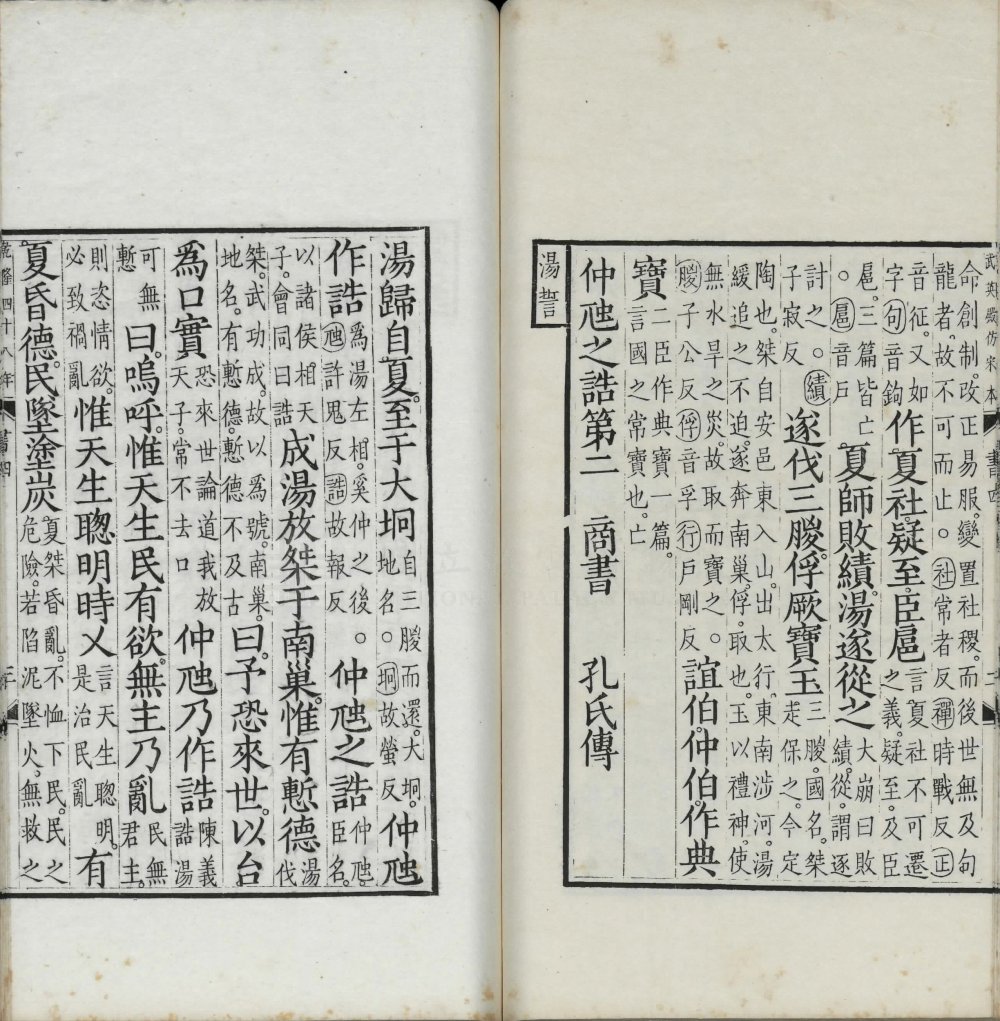 武英殿仿宋本 書四 二
命創制改正易服變置社稷而後世無及句龍者故不可而止。社常者反禪時戰反正
音征。又如字句音鉤作夏社。疑至臣扈言夏社不可遷之義。疑至。及臣
扈。三篇皆亡。扈音戶夏師敗績。湯遂從之大崩曰敗績。從。謂遂
討之。績子寂反遂伐三朡。俘厥寶玉三朡。國名。桀走保之。今定
陶也。桀自安邑東入山。出太行。東南涉河。湯緩追之不迫。遂奔南巢。俘。取也。玉以禮神。使
無水旱之災。故取而寶之。朡子公反俘音孚行戶剛反誼伯。仲伯。作典
寶二臣作典寶一篇。言國之常寶也。亡
仲虺之誥第二 商書 孔氏傳
湯誓
湯歸自夏。至于大坰自三朡而還。大坰。地名。坰故螢反仲虺
作誥為湯左相。奚仲之後。虺許鬼反誥故報反仲虺之誥仲虺。臣名。
以諸侯相天子。會同曰誥成湯放桀于南巢。惟有慙德湯伐
桀。武功成。故以為號。南巢。地名。有慙德。慙德不及古曰。予恐來世。以台
為口實恐來世論道我放天子。常不去口仲虺乃作誥陳義誥湯
可無慙曰。嗚呼。惟天生民有欲。無主乃亂民無君主。
則恣情欲。必致禍亂惟天生聰明時乂言天生聰明。是治民亂有
夏昏德。民墜塗炭夏桀昏亂。不恤下民。民之危險。若陷泥墜火。無救之
乾隆四十八年 書四 三